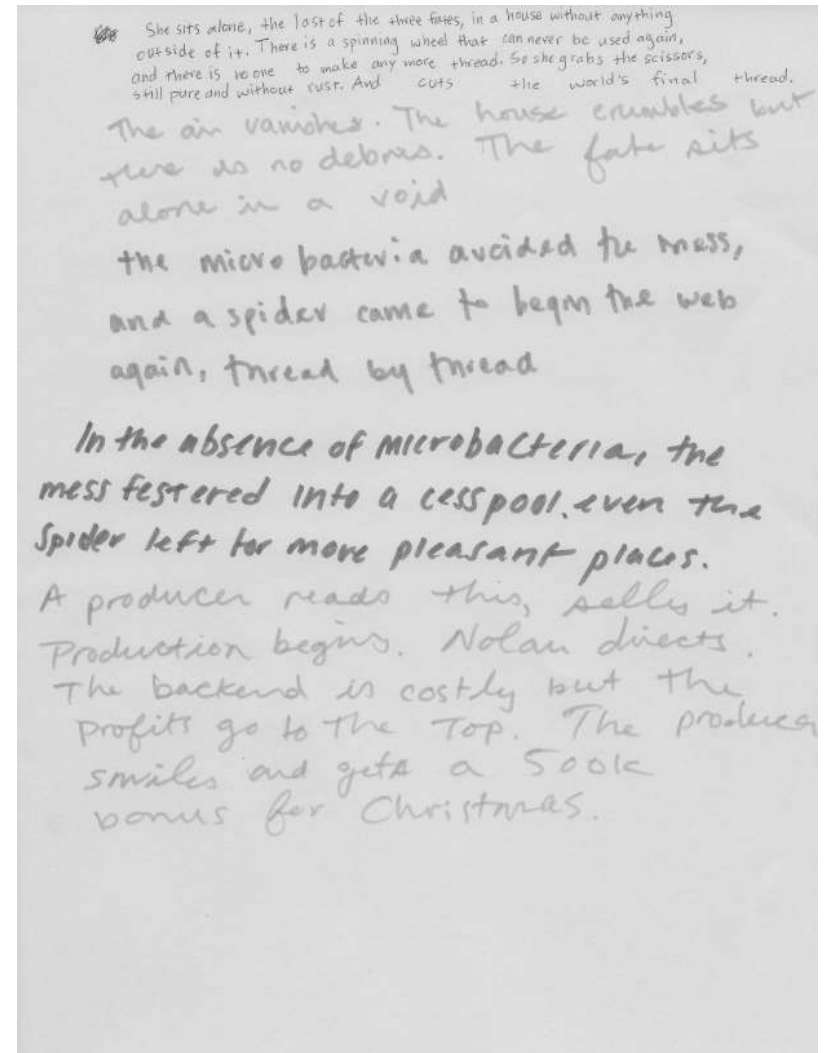 She sits alone, the last of the three fates, in a house without anything
outside of it. There is a spinning wheel that can never be used again,
and there is no one to make any more thread. So she grabs the scissors,
still pure and without rust. And cuts the world's final thread.
The air vanishes. The house crumbles but
there is no debris. The fate sits
alone in a void
the microbacteria avoided the mess,
and a spider came to begin the web
again, thread by thread
In the absence of microbacteria, the
mess festered into a cesspool. even the
spider left for more pleasant places.
A producer reads this, sells it.
Production begins. Nolan directs.
The backend is costly but the
profits go to the top. The producer
smiles and gets a 500k
bonus for Christmas.